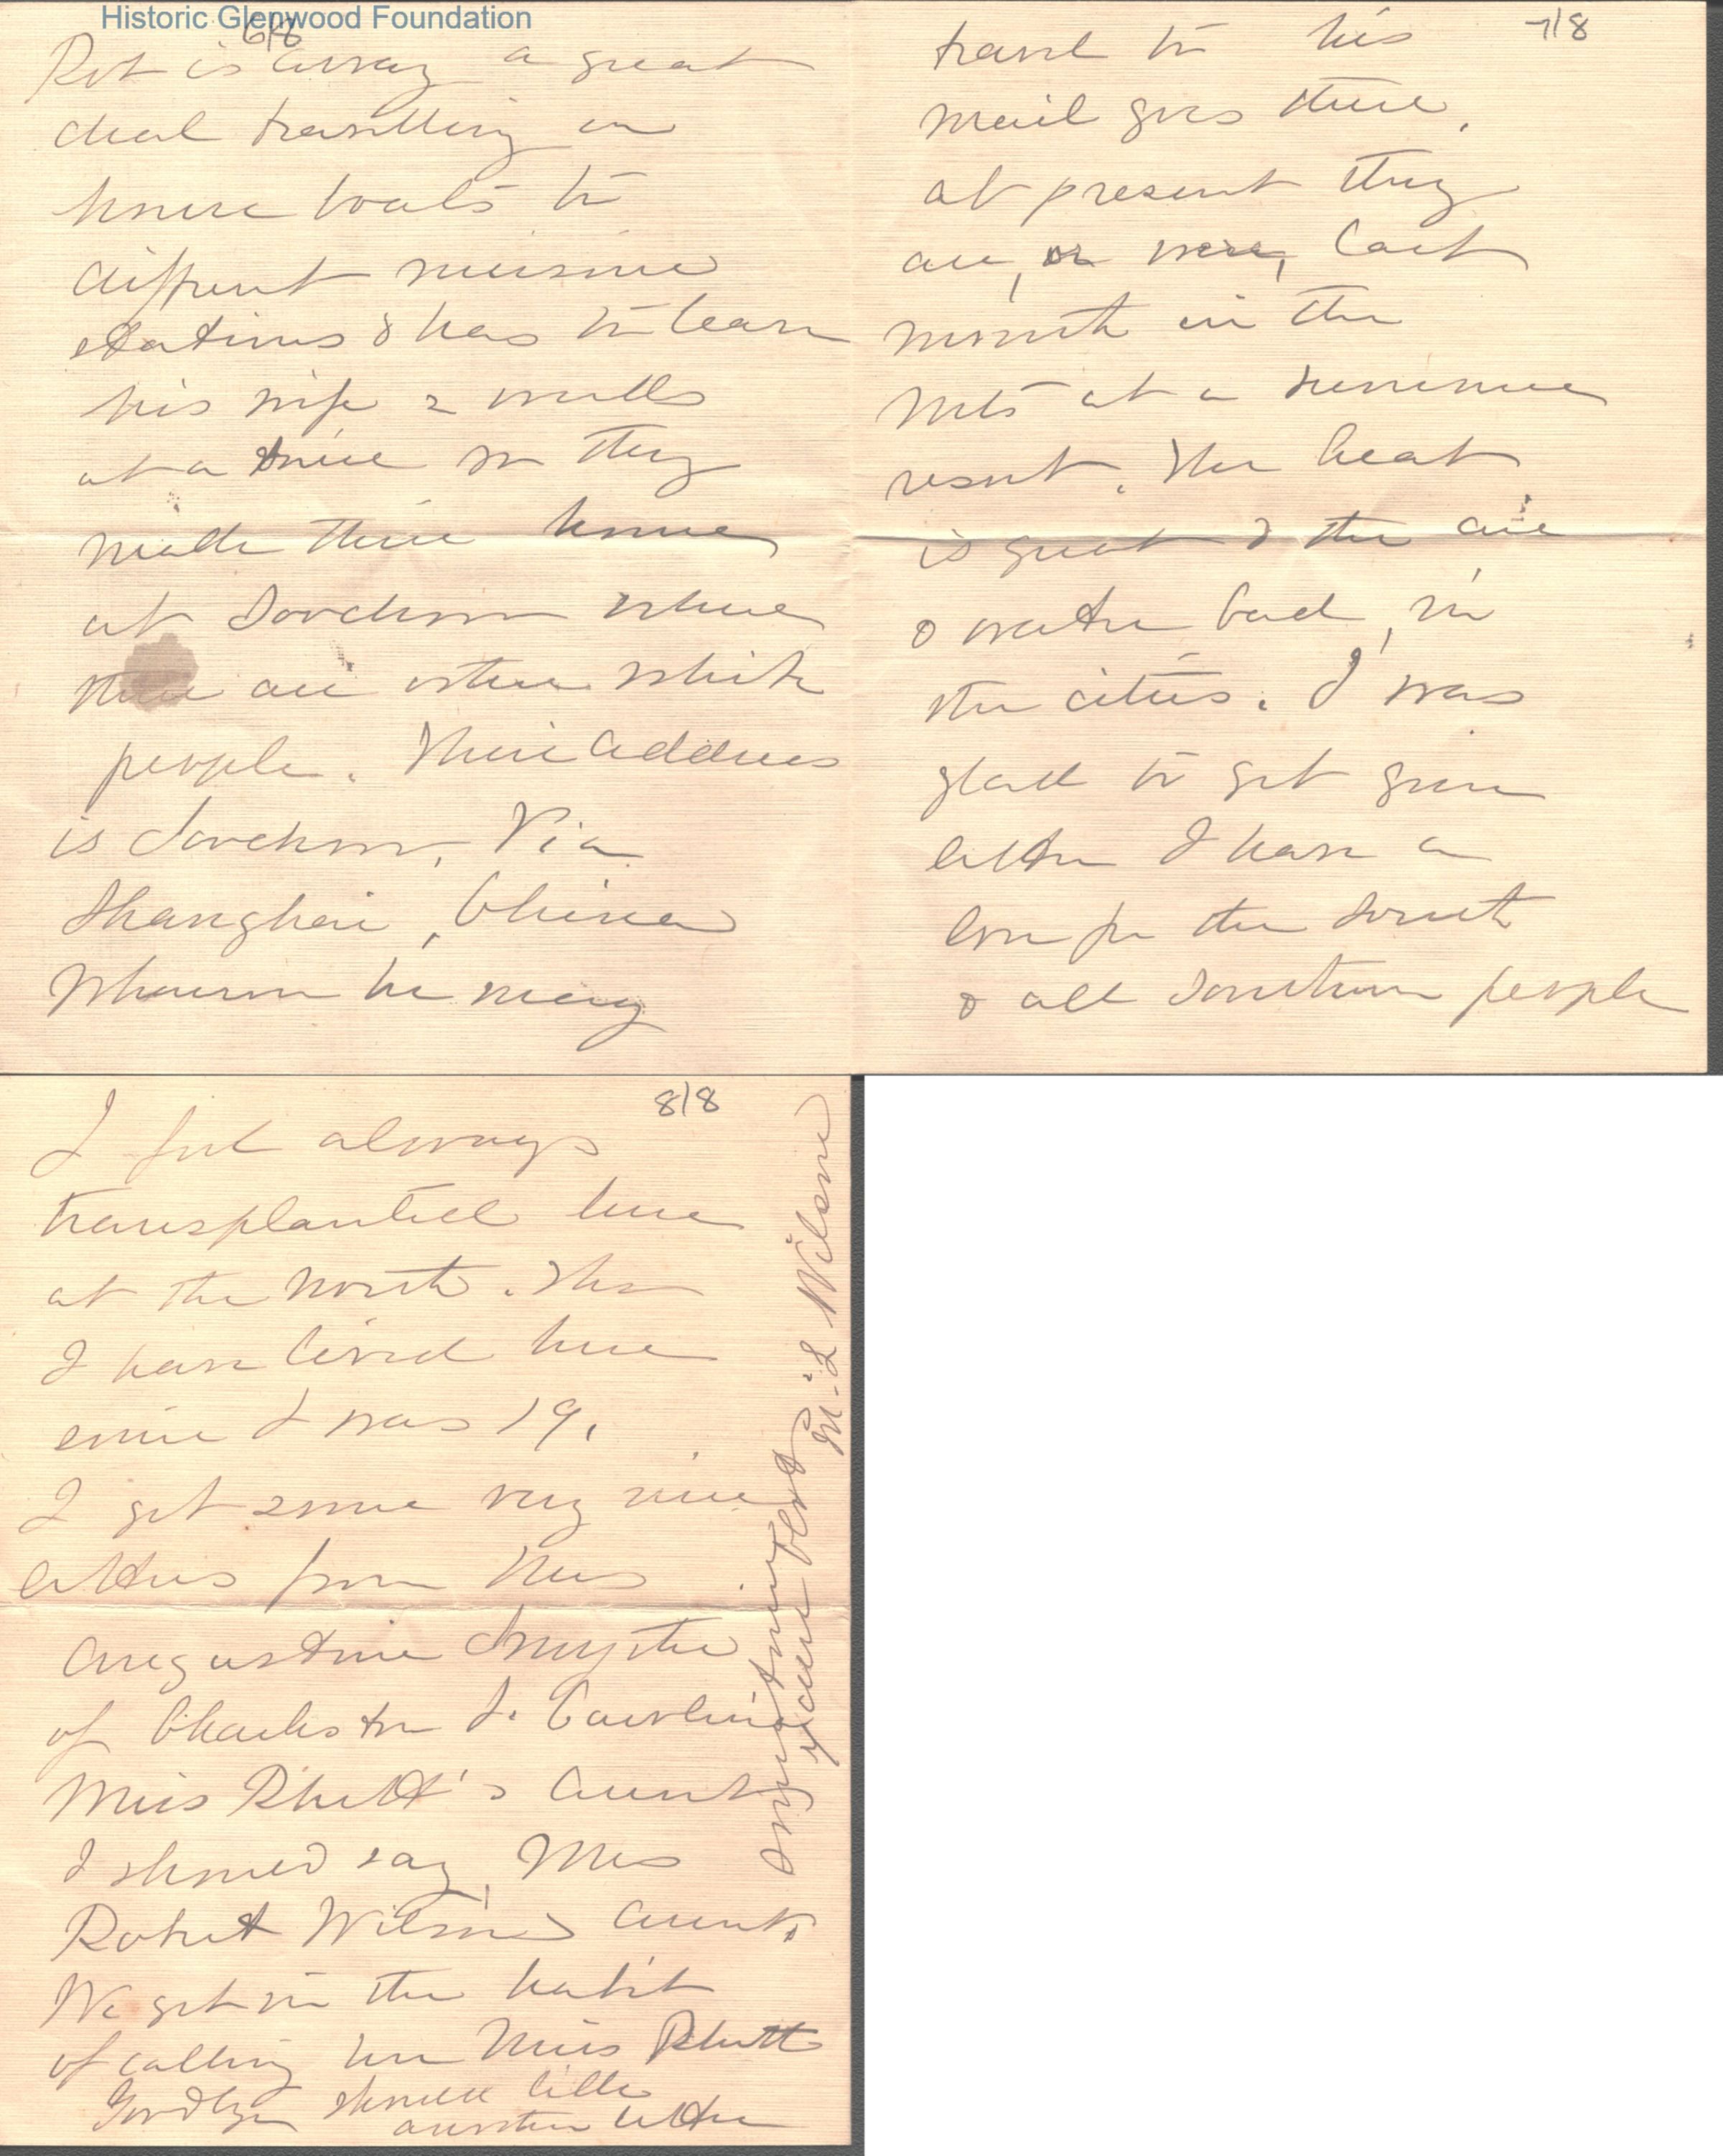 Historic Glenwood Foundation
6/8
Rob is away a great
deal travelling on
house boats to
different mission
stations & has to leave
his wife 2 weeks
at a time so they
made their home
at Soochow where
there are other white
people. Their address
is Soochow, Via
Shanghai, China
Wherever he may
7/8
travel to his
mail goes there.
at present they
are, or were, last
month in the
Mts at a summer
resort. The heat
is great & the air
& water bad, in
the cities. I was
glad to get your
letter I have a
love for the South
& all Southern people
8/8
I feel always
transplanted here
at the North. Tho
I have lived here
since I was 19.
I get some very nice
letters from Mrs
Augustine Smythe
of Charleston S. Carolina
Miss Rhett's Aunt
I should say, Mrs
Robert Wilson's Aunt.
We get in the habit
of calling her Miss Rhett
Goodbye should like
another letter
any time
your
M. L. Wilson